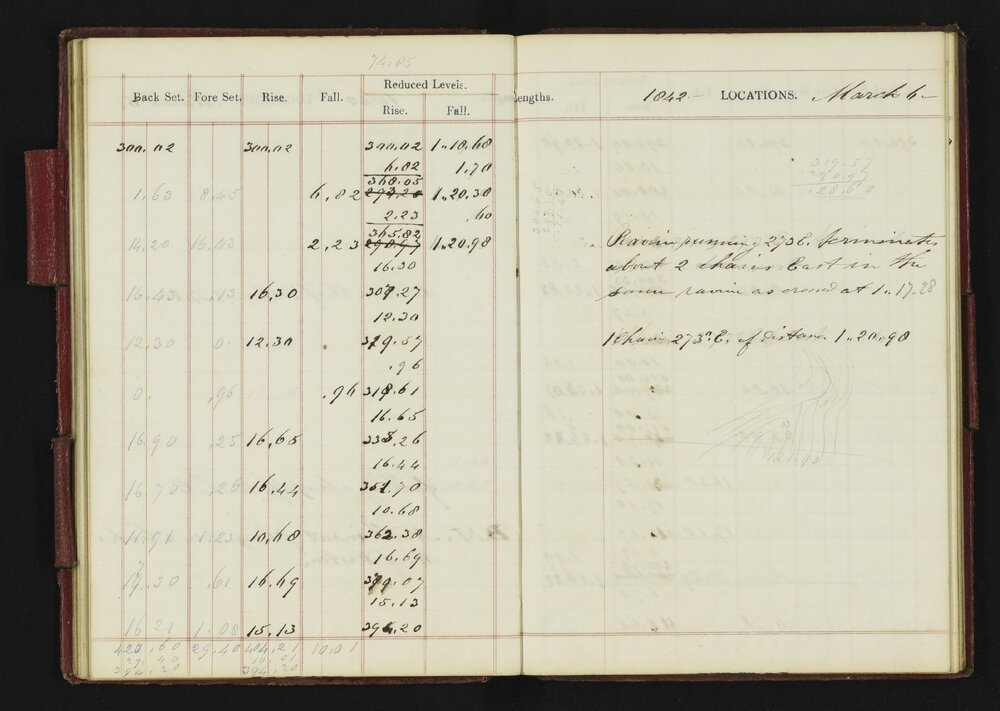 74.05
Reduced Levels.
Back Set. Fore Set. Rise. Fall. Rise. Fall. engths.
300.02 300.02 300.02 1.,18.68
6.82 1.70
368.05
1.63 8.45 6.82 293.20 1.,20.38
2.23 .60
365.82
14.20 16.43 2.23 290.97 1.,20.98
16.30
16.43 .13 16.30 307.27
12.30
12.30 0. 12.30 319.57
.96
0. .96 .96 318.61
16.65
16.90 .25 16.65 335.26
16.44
16.70 .26 16.44 351.70
10.68
11.91 1.23 10.68 362.38
16.69
17.30 .61 16.69 379.07
15.13
16.21 1.08 15.13 394.20
423.60 29.40 404.21 10.01
29.40 10.01
394.20 394.20
1842 LOCATIONS. March 6
319.57
290.97
28.60
Ravin running 273 E. terminates
about 2 chains East in the
same ravin as crossd at 1.,17.28
1 chain 273° E. of distance 1.,20.98
121.90